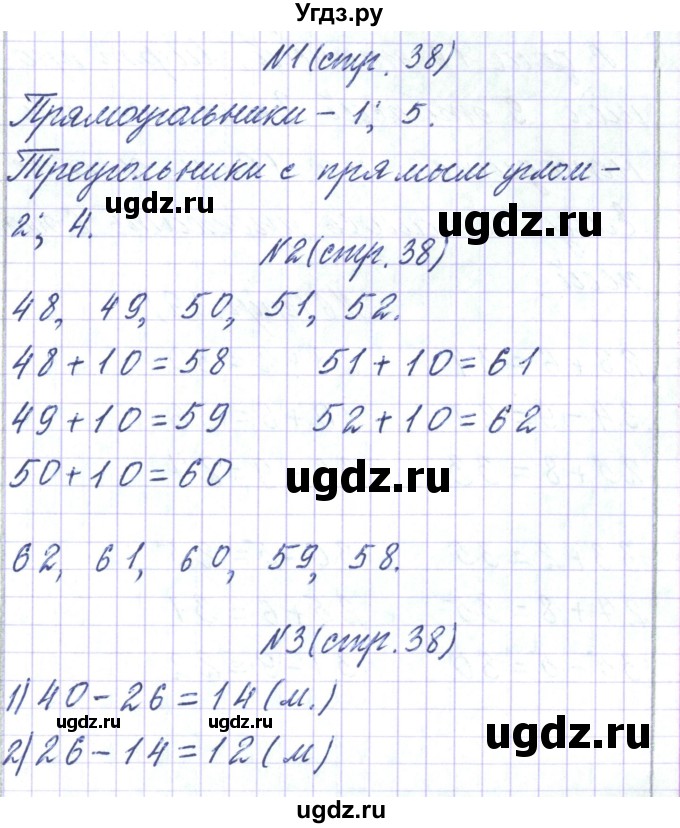 Угдз.ру
N1 (стр. 38)
Прямоугольники – 1; 5.
Треугольники с прямым углом –
ugdz.ru ugdz.ru
2; 4.
N2 (стр. 38)
48, 49, 50, 51, 52.
48+10=58 51+10=61
49+10=59 52+10=62
50+10=60
ugdz.ru
62, 61, 60, 59, 58.
N3 (стр. 38)
1) 40-26=14 (м.)
ugdz.ru ugdz.ru ugdz.ru
2) 26-14=12 (м)
ugdz.ru